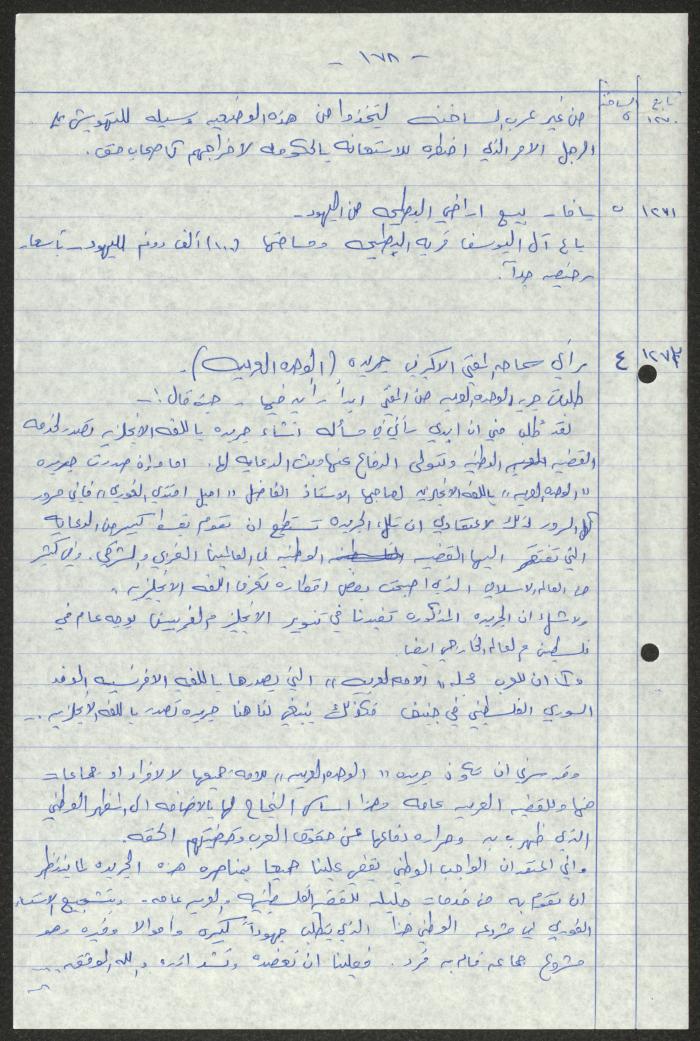 - ١٧٨ -
تابع ١٢٧٠ الساخنة ٥ من غير عرب الساخنه ليتخذوا من هذه الوضعيه وسيله للتهويش على
الرجل الامر الذي اضطره للاستعانه بالحكومه لاخراجهم كاصحاب حق .
١٢٧١ ٥ يافا - بيع اراضي البطيحه من اليهود -
باع آل اليوسف قريه البطيحه ومساحتها (١٠٠) ألف دونم لليهود - بأسعار
رخيصه جداً .
١٢٧٢ ٤ رأي سماحه المفتي الاكبر في جريده (الوحده العربيه) .
طلبت جريده الوحده العربيه من المفتي ابداء رأيه فيها - حيث قال :-
لقد طُلب مني ان ابدي رأيي في مسأله انشاء جريده باللغه الانجليزيه تصدر لخدمه
القضيه العربيه الوطنيه وتتولى الدفاع عنها وبث الدعايه لها . اما وقد صدرت جريده
" الوحده العربيه " باللغه الانجليزيه لصاحبها الاستاذ الفاضل " اميل افندي الغوري " فإني مسرور
كل السرور لذلك لاعتقادي ان تلك الجريده تستطيع ان تقوم بقسط كبير من الدعايه
التي تفتقر اليها القضيه الوطنيه في العالمين الغربي والشرقي . وفي كثير
من العالم الاسلامي الذي اصبحت بعض اقطاره تعرف اللغه الانجليزيه .
ولا شك ان الجريده المذكوره تفيدنا في تنوير الانجليز والغربيين بوجه عام في
فلسطين والعالم الخارجي ايضا .
وكما ان للعرب مجله " الامه العربيه " التي يصدرها باللغه الافرنسيه الوفد
السوري الفلسطيني في جنيف فكذلك ينبغي لنا هنا جريده تصدر باللغه الانجليزيه ..
وقد سرني ان تكون جريده " الوحده العربيه " للامه جميعها لا لافراد او جماعات
منها وللقضيه العربيه عامه وهذا اساس النجاح لها بالاضافه الى المظهر الوطني
الذي ظهرت به وحراره دفاعها عن حقوق العرب وقضيتهم الحقه .
واني اعتقد ان الواجب الوطني يقضي علينا جميعا بمناصره هذه الجريده لما ينتظر
ان تقوم به من خدمات جليله للقضيه الفلسطينيه والعربيه عامه - وبتشجيع الاستاذ
الغوري في مشروعه الوطني هذا الذي يتطلب جهوداً كبيره واموالا وفيره وهو
مشروع جماعه قام به فرد . فعلينا ان نعضده ونشد ازره والله الموفق ...